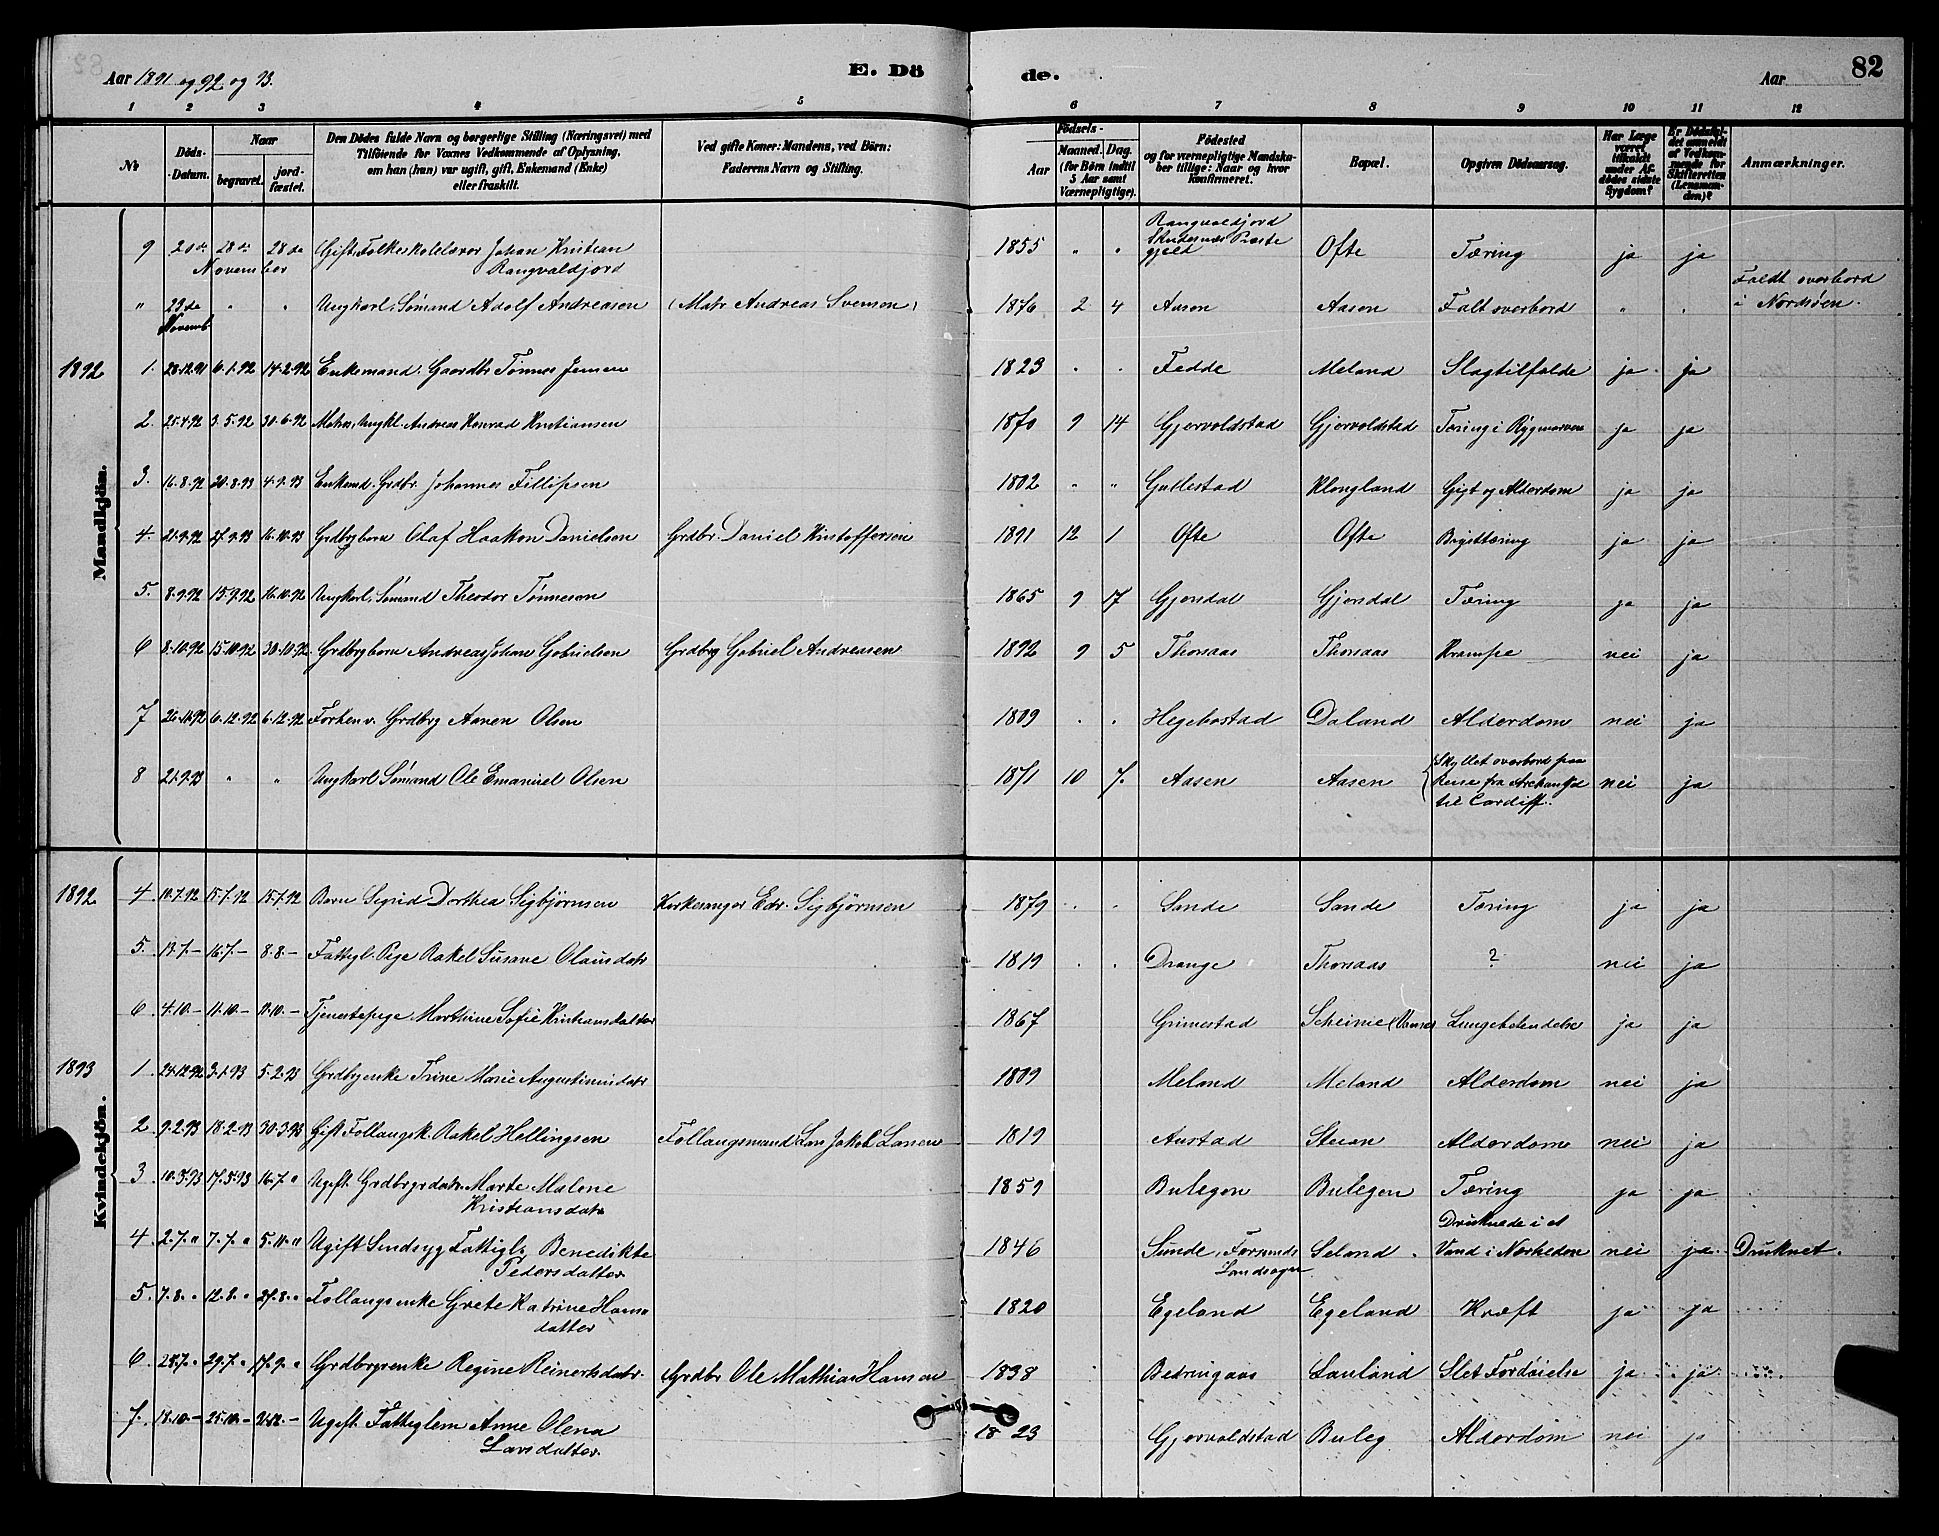 Aar 1891 og 92 og 93.
E. Dö
de.
Aar
82
1 2 3 4 5 6 7 8 9 10 11 12
No
Döds-Datum.
Naar
begravet.
jordfæstet.
Den Dödes fulde Navn og borgerlige Stilling (Næringsvei) med
Tilföiende for Voxnes Vedkommende af Oplysning,
om han (hun) var ugift, gift, Enkemand (Enke)
eller fraskilt.
Ved gifte Koner: Mandens, ved Börn:
Faderens Navn og Stilling.
Födsels-
Aar
Maaned. Dag.
(for Börn indtil
5 Aar samt
Værnepligtige).
Födested
og for værnepligtige Mandska-
ber tillige: Naar og hvor
konfirmeret.
Bopæl.
Opgiven Dödsaarsag.
Har Læge
været
tilkaldt
under Af-
dödes sidste
Sygdom?
Er Dödsfal-
det anmeldt
af Vedkom-
mende for
Skifteretten
(Lensman-
den)?
Anmærkninger.
Mandkjön.
9 20de 28de 28de November Gift Folkeskolelærer Johan Kristian Rangvaldjord 1855 " " Rangvaldjord Skudesnæs Præstegjeld Ofte Tæring ja ja
" 23de Novemb " " Ungkarl, Sømand Adolf Andreasen (Matr Andreas Svensen) 1876 2 4 Aasen Aasen Falt overbord " " Faldt overbord i Nordsøen.
1892 1. 28.12.91 6.1.92 14.2.92 Enkemand. Gaardbr Tønnes Jensen 1823 " " Fedde Meland Slagtilfælde ja ja
2. 25.4.92 3.5.92 30.6.92 Matros, Ungkl. Andreas Konrad Kristiansen 1870 9 14 Gjervoldstad Gjervoldstad Tæring i Rygmarven ja ja
3. 16.8.92 20.8.93 4.9.93 Enkemd. Grdbr. Johannes Fillipsen 1802 " " Gullestad Klungland Gigt og Alderdom ja ja
4. 21.9.92 27.9.93 16.10.93 Grdbrgbarn Olaf Haakon Danielsen Grdbr. Daniel Kristoffersen 1891 12 1 Ofte Ofte Brysttæring ja ja
5. 8.9.92 15.9.92 16.10.92 Ungkarl, Sømand Theodor Tønnesen 1865 9 17 Gjersdal Gjersdal Tæring ja ja
6 8.10.92 15.10.92 30.10.92 Grdbrgbarn Andreas Johan Gabrielsen Grdbrg Gabriel Andreassen 1892 9 5 Thorsaas Thorsaas Krampe nei ja
7 26.11.92 6.12.92 6.12.92 Forhenv. Grdbrg Aanen Olsen 1809 " " Hegebostad Daland Alderdom nei ja
8 21.9.93 " " Ungkarl Sømand Ole Emanuel Olsen 1871 10 7. Aasen Aasen Skyllet overbord paa Reise fra Archangel til Cardiff. nei ja
Kvindekjön.
1892 4 10.7.92 15.7.92 15.7.92 Barn Sigrid Dorthea Sigbjørnsen Kirkesanger Edv. Sigbjørnsen 1879 " " Sande Sande Tæring ja ja
5. 13.7 - 16.7 - 8.8 - Fattigl. Pige Rakel Susane Olausdatr 1819 " " Drange Thorsaas ? nei ja
6 4.10 - 11.10 - 11.10 - Tjenestepige Marthine Sofie Kristiansdatter 1867 Grimestad Lungebetændelse ja ja
1893 1 24.12.92 3.1.93 5.2.93 Grdbrgenke Trine Marie Augustinusdatr 1809 Meland Meland Alderdom nei ja
2 9.2.93 18.2.93 30.3.93 Gift Follaugsk. Rakel Hellingsen Follaugsmand Lars Jakob Larsen 1819 Austad Alderdom nei ja
3 10.5.93 17.5.93 16.7 " Ugift Grdbrgrdatr Marte Malene Kristiansdatr 1859 Bulegen Bulegen Tæring ja ja
4 2.7. " 7.7. " 5.11. " Ugift Sindsyg Fattigl. Benedikte Pedersdatter 1846 Sunde, Landsogn Seland Druknede i et Vand i Nærheden nei ja Druknet.
5 7.8. " 12.8. " 27.8. " Follaugsenke Grete Katrine Hansdatter 1820 Egeland Egeland Kræft ja ja
6 25.7. " 29.7. " 17.9. " Grdbrgrenke Regine Reinertsdatr. Grdbr Ole Mathias Hansen 1838 Bedringaas Lauland Slet Fordøielse ja ja
7. 18.10 - 25.10 - Ugift Fattiglem Anne Olena Larsdatter 1823 Gjervoldstad Buleg Alderdom nei ja